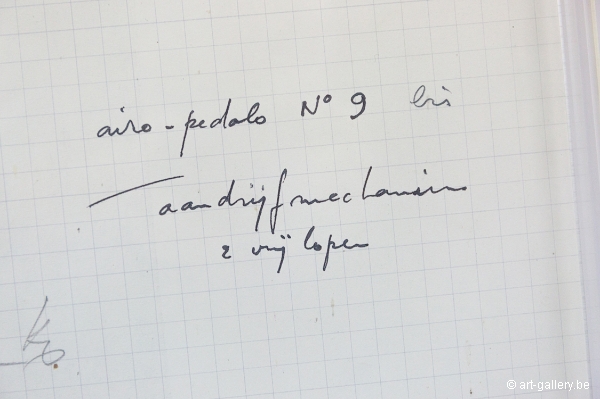 airo-pedalo No 9 bis
aandrijfmechanism
2 vrij lopen
© art-gallery.be